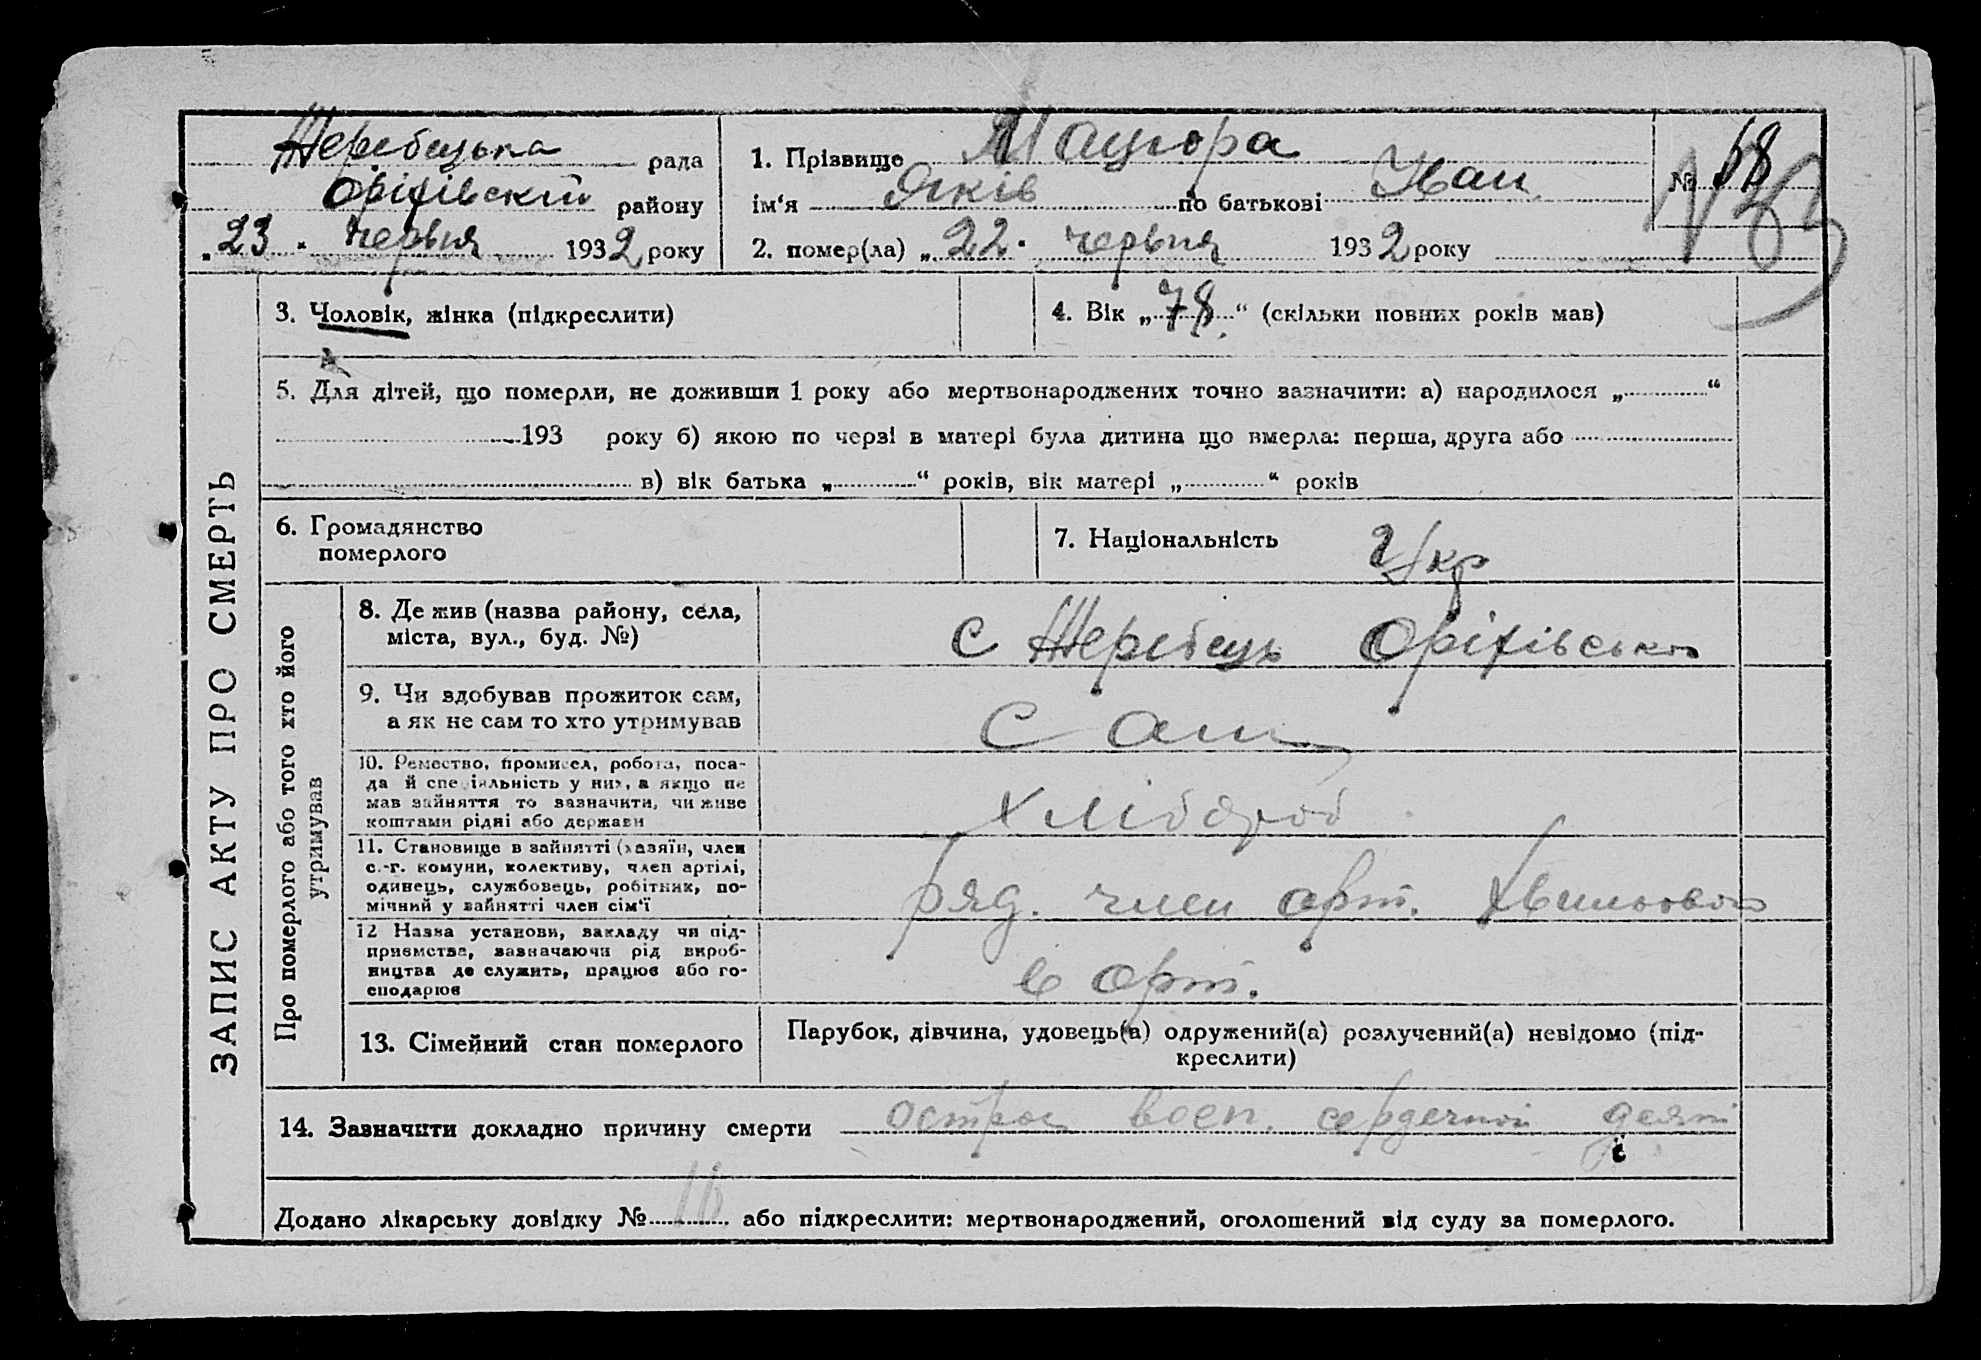 Жеребецька рада
Оріхівський району
„23" червня 1932 року
1. Прізвище Мацюра
ім‘я Яків по батькові Іван
2. помер(ла) „22" червня 1932 року
№ 68
ЗАПИС АКТУ ПРО СМЕРТЬ
3. Чоловік, жінка (підкреслити)
4. Вік „78“ (скільки повних років мав)
5. Для дітей, що померли, не доживши 1 року або мертвонароджених точно зазначити: а) народилося „ “
193 року б) якою по черзі в матері була дитина що вмерла: перша, друга або
в) вік батька „ “ років, вік матері „ “ років
6. Громадянство
померлого
7. Національність Укр
Про померлого або того хто його
утримував
8. Де жив (назва району, села,
міста, вул., буд. №)
с Жеребець Оріхівсько
9. Чи здобував прожиток сам,
а як не сам то хто утримував
Сам
10. Ремество, промисел, робота, поса-
да й спеціяльність у них, а якщо не
мав зайняття то зазначити, чи живе
коштами рідні або держави
Хлібороб
11. Становище в зайнятті (хазяїн, член
с.-г. комуни, колективу, член артілі,
одинець, службовець, робітник, по-
мічний у зайнятті член сім‘ї
ряд. член арт.
12 Назва установи, закладу чи під-
приємства, зазначаючи рід вироб-
ництва де служить, працює або го-
сподарює
в арт.
13. Сімейний стан померлого
Парубок, дівчина, удовець(а) одружений(а) розлучений(а) невідомо (під-
креслити)
14. Зазначити докладно причину смерти восп. сердечной деят
Додано лікарську довідку № 16 або підкреслити: мертвонароджений, оголошений від суду за померлого.